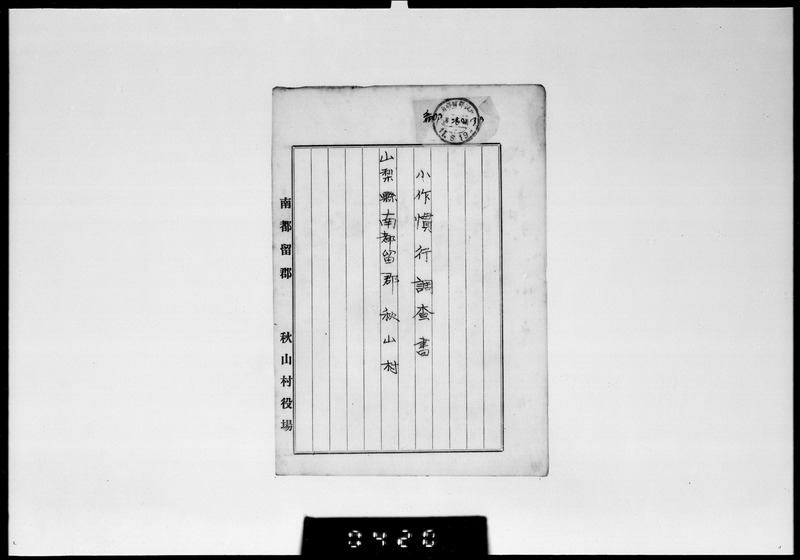 小作慣行調査書
山梨縣南都留郡秋山村
南都留郡 秋山村役場
0420